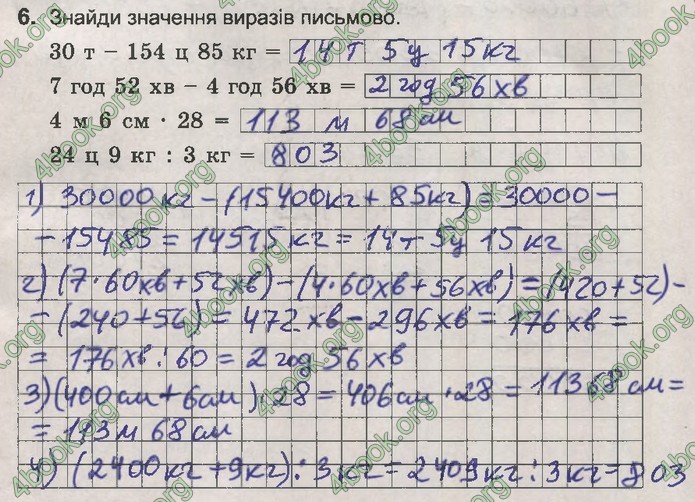 6. Знайди значення виразів письмово.
30 т − 154 ц 85 кг = 14 т 5 ц 15 кг
7 год 52 хв − 4 год 56 хв = 2 год 56 хв
4 м 6 см · 28 = 113 м 68 см
24 ц 9 кг : 3 кг = 803
1) 30000 кг − (15400 кг + 85 кг) = 30000 −
− 15485 = 14515 кг = 14 т 5 ц 15 кг
2) (7·60 хв + 52 хв) − (4·60 хв + 56 хв) = (420 + 52) −
− (240 + 56) = 472 хв − 296 хв = 176 хв =
= 176 хв : 60 = 2 год 56 хв
3) (400 см + 6 см) · 28 = 406 см · 28 = 11368 см =
= 113 м 68 см
4) (2400 кг + 9 кг) : 3 кг = 2409 кг : 3 кг = 803
4book.org